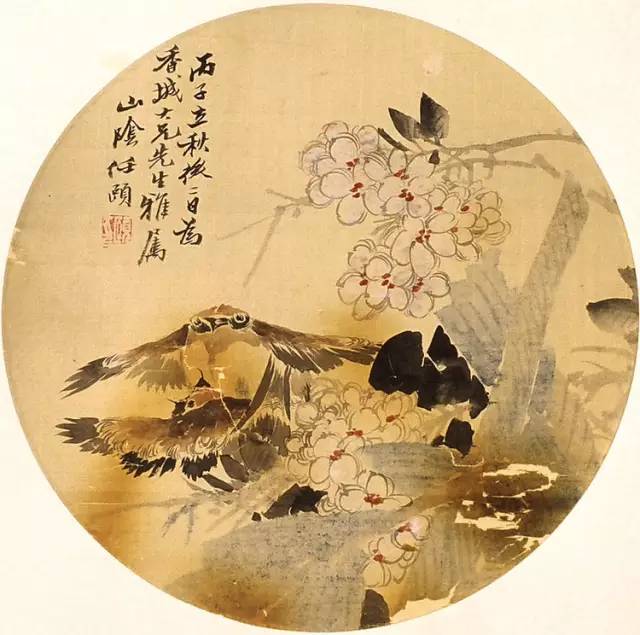 丙子立秋後日為
香城大兄先生雅属
山陰任頤